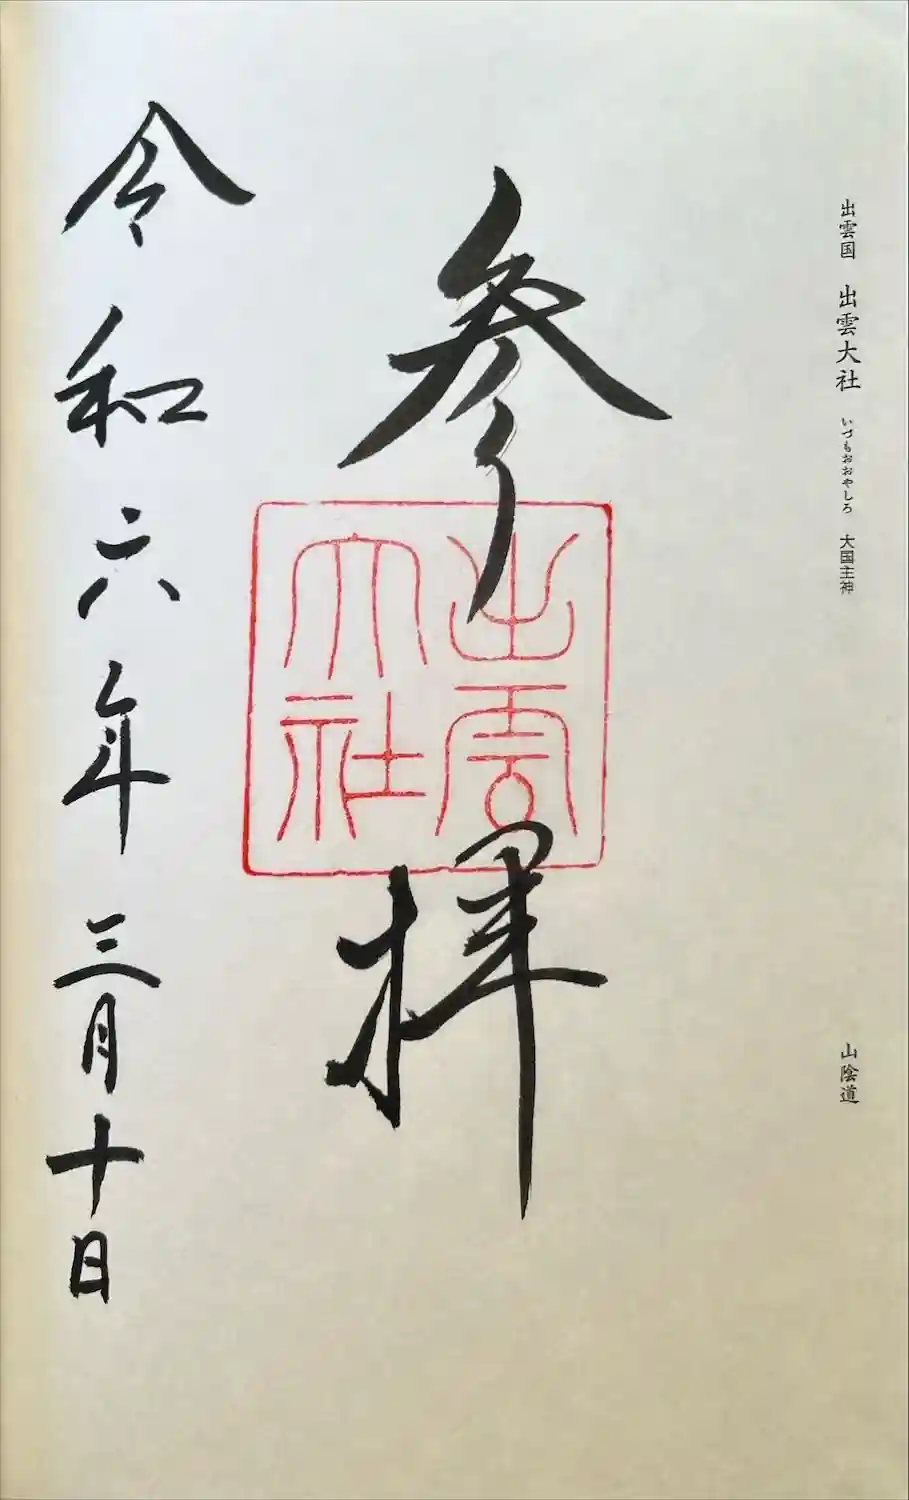 出雲国 出雲大社 いづもおおやしろ 大国主神 山陰道
参拝
出雲
大社
令和六年三月十日